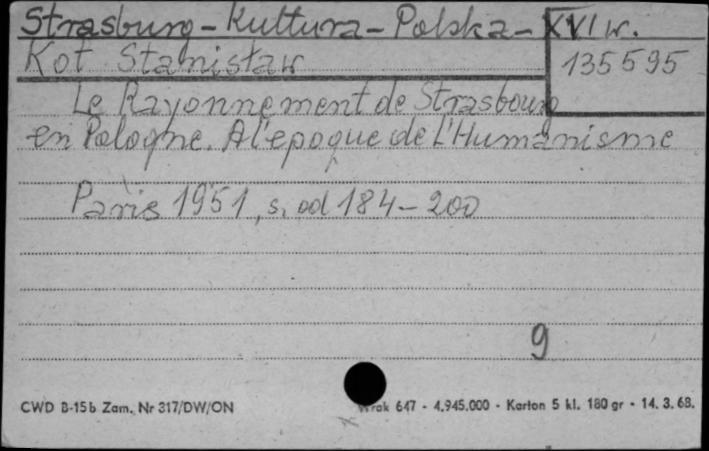 Strasburg - Kultura - Polska - XVI w.
Kot Stanisław
135595
Le Rayonnement de Strasbourg
en Pologne. A l'epoque de L'Humanisme
Paris 1951, s. od 184-200
9
CWD B-15b Zam. Nr 317/DW/ON
647 - 4.945.000 - Karton 5 kl. 180 gr - 14. 3. 68.